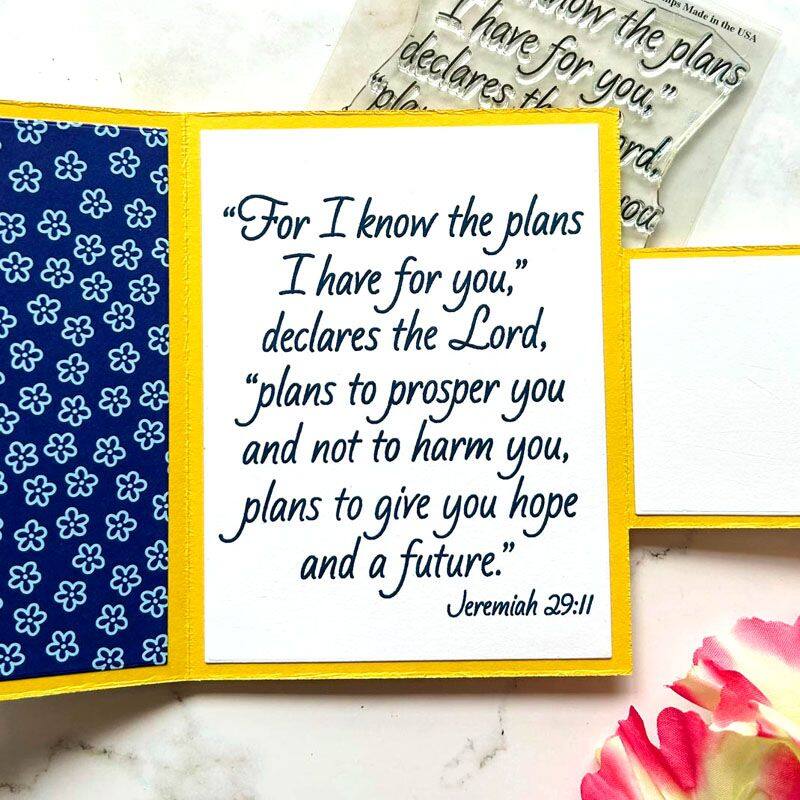 mps Made in the USA
know the plans
I have for you,"
declares th
"plan
ord,
you
"For I know the plans
I have for you,"
declares the Lord,
"plans to prosper you
and not to harm you,
plans to give you hope
and a future."
Jeremiah 29:11